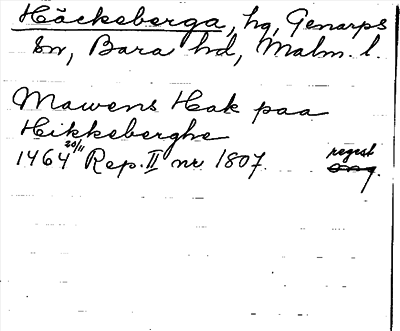 Häckeberga, hg, Genarps
sn, Bara hd, Malm. l.
Mawens Hak paa
Hikkeberghe
1464 20/11 Rep. II nr 1807. regest
orig.